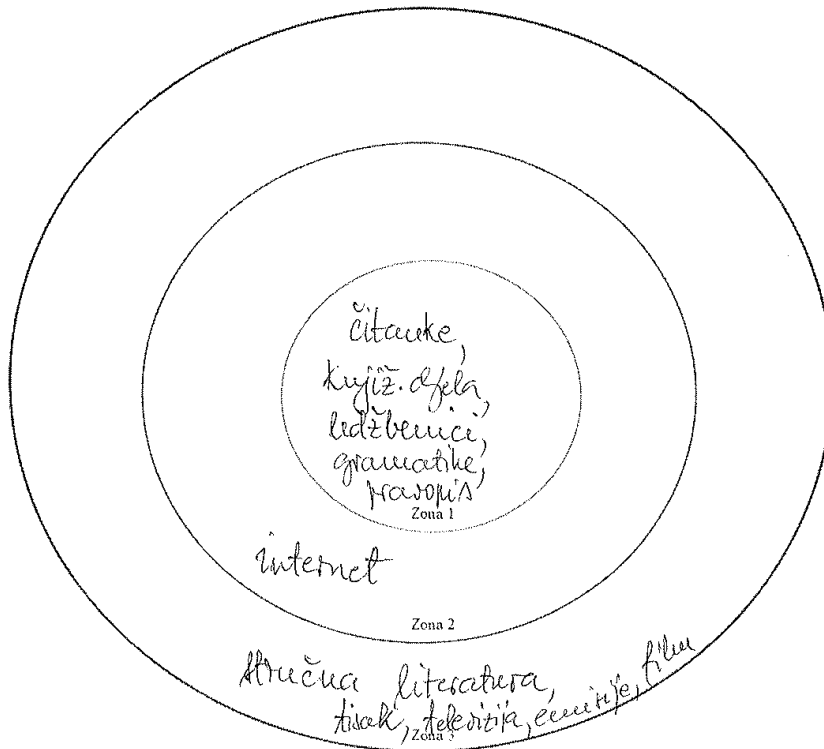 čitanke,
književ. djela,
udžbenici,
gramatike,
pravopis
Zona 1
internet
Zona 2
stručna literatura,
tisak, televizija, emisije, film
Zona 3